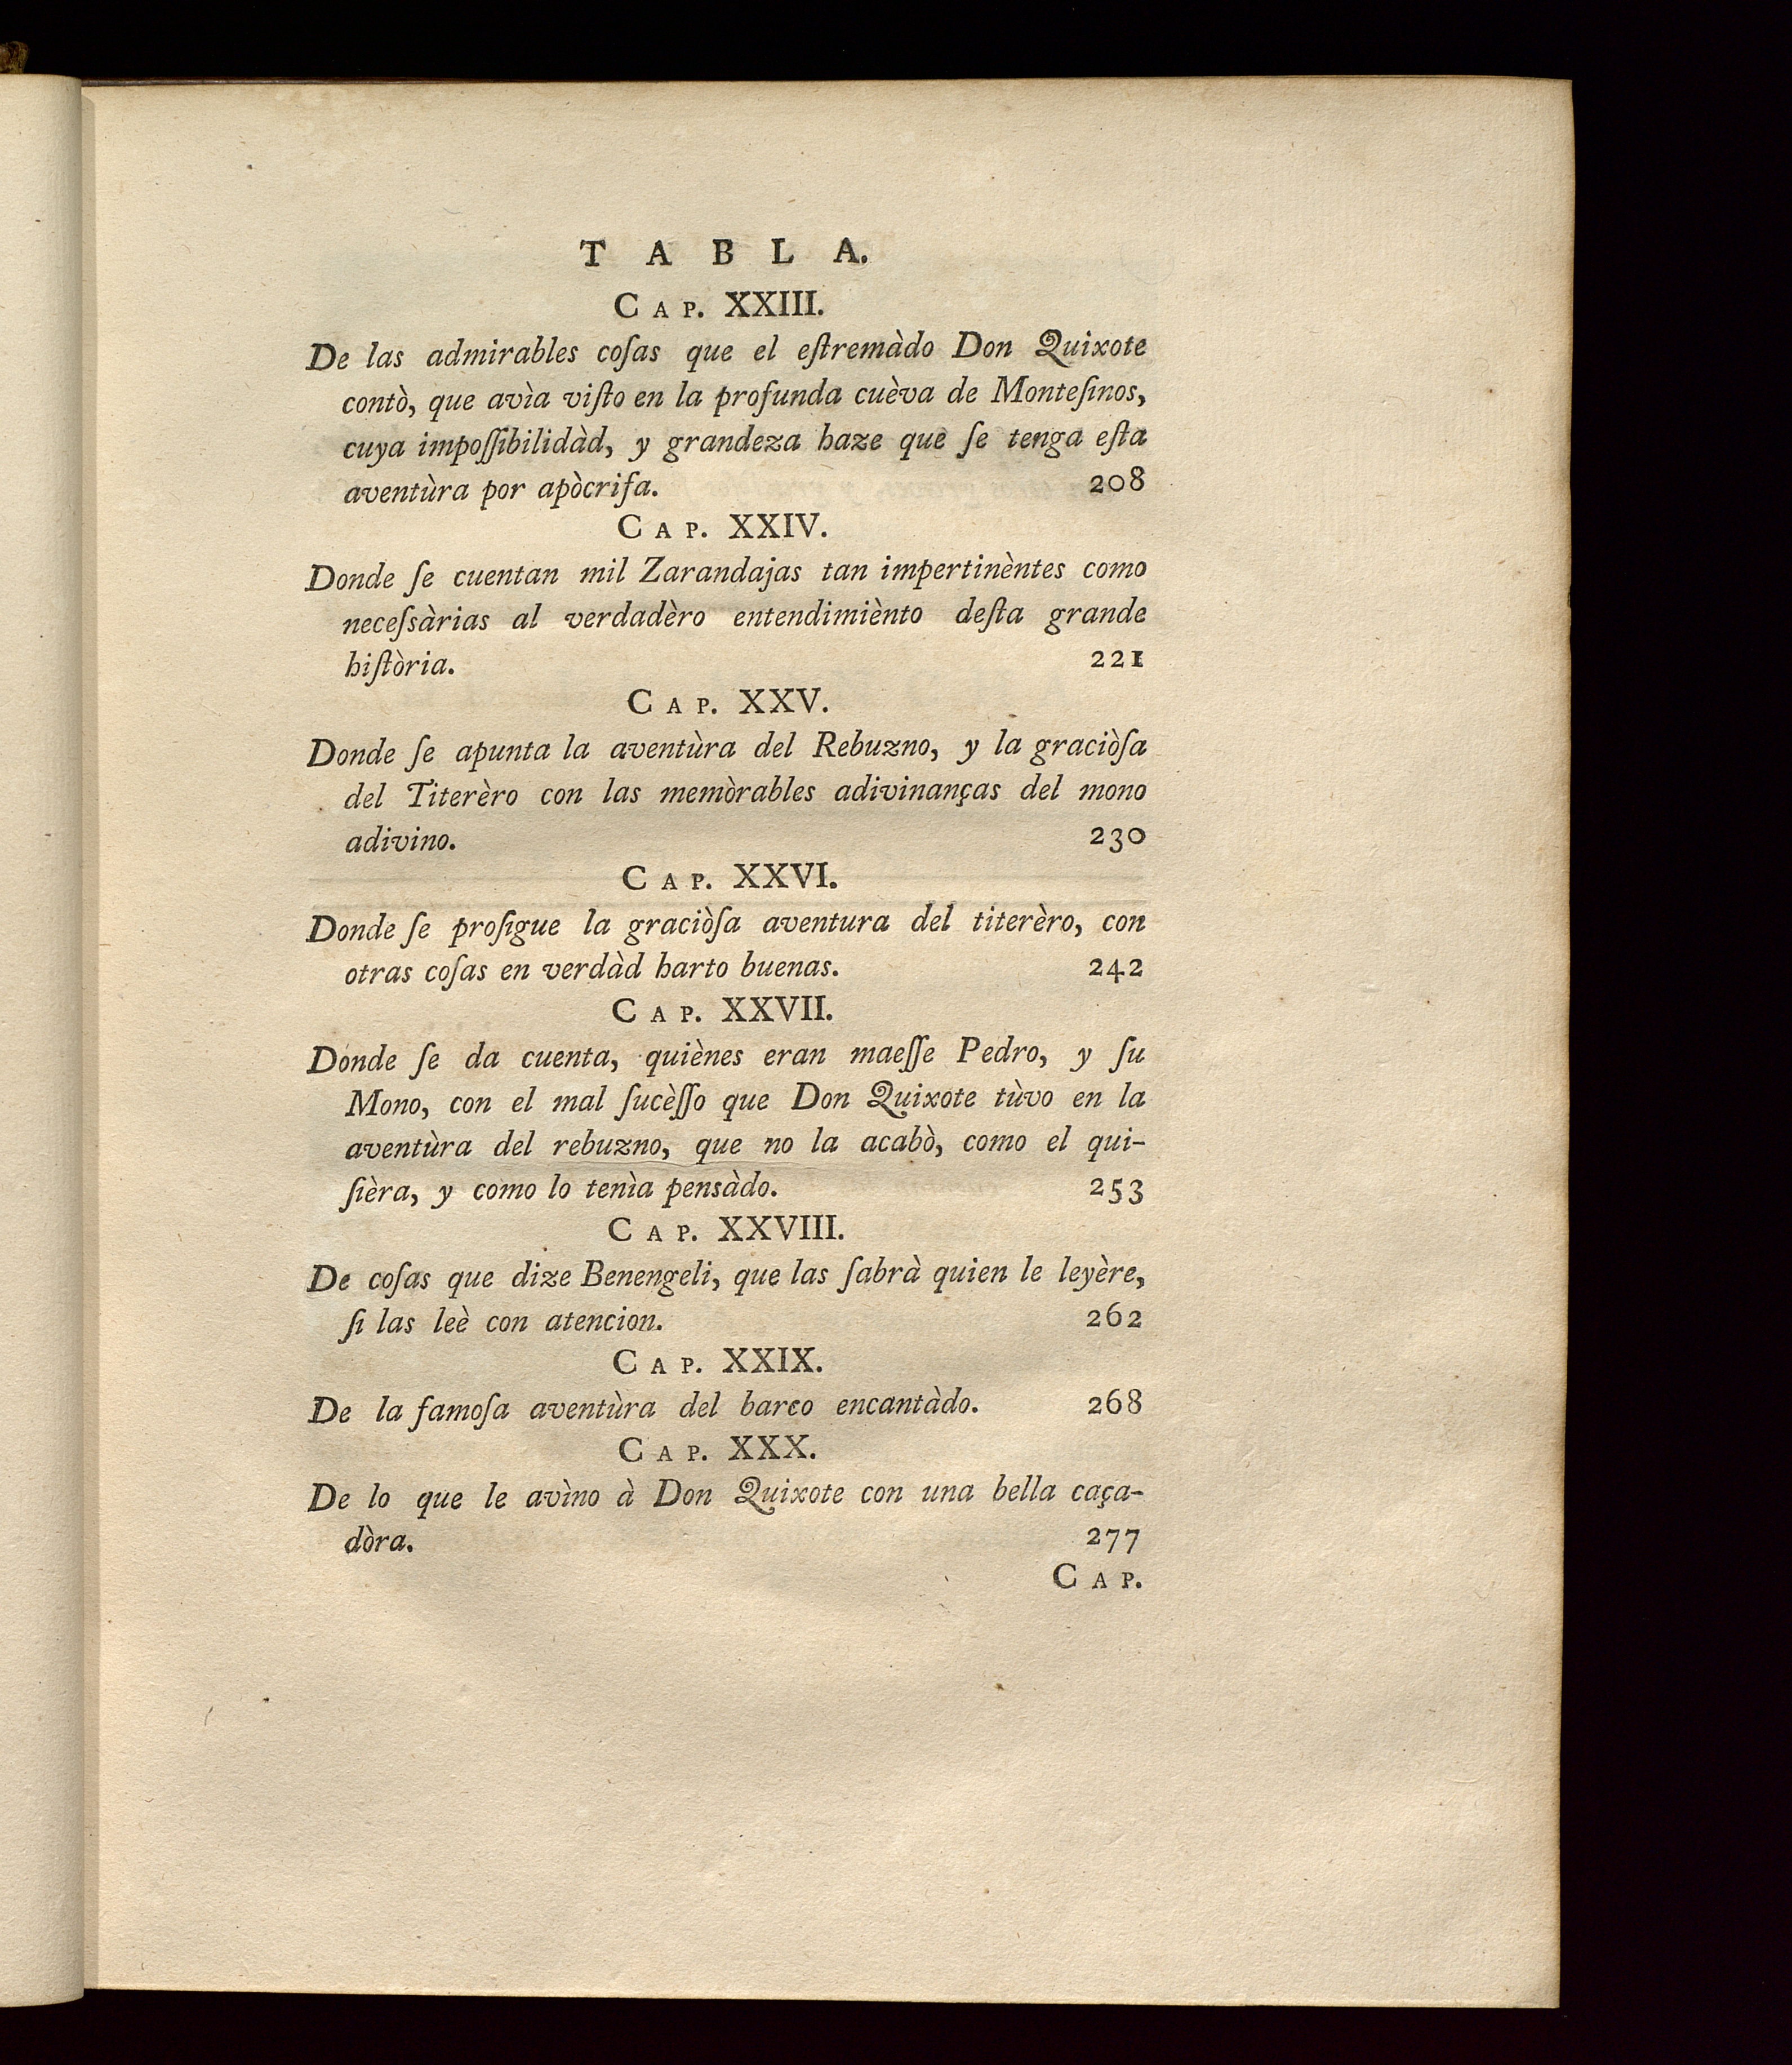 TABLA.
CAP. XXIII.
De las admirables coſas que el eſtremàdo Don Quixote
contò, que avìa viſto en la profunda cuèva de Monteſinos,
cuya impoſſibilidàd, y grandeza haze que ſe tenga eſta
aventùra por apòcrifa. 208
CAP. XXIV.
Donde ſe cuentan mil Zarandajas tan impertinèntes como
neceſsàrias al verdadèro entendimiènto deſta grande
hiſtòria. 221
CAP. XXV.
Donde ſe apunta la aventùra del Rebuzno, y la graciòſa
del Titerèro con las memòrables adivinanças del mono
adivino. 230
CAP. XXVI.
Donde ſe proſigue la graciòſa aventura del titerèro, con
otras coſas en verdàd harto buenas. 242
CAP. XXVII.
Donde ſe da cuenta, quiènes eran maeſſe Pedro, y ſu
Mono, con el mal ſucèſſo que Don Quixote tùvo en la
aventùra del rebuzno, que no la acabò, como el qui-
ſièra, y como lo tenìa pensàdo. 253
CAP. XXVIII.
De coſas que dize Benengeli, que las ſabrà quien le leyère,
ſi las leè con atencion. 262
CAP. XXIX.
De la famoſa aventùra del barco encantàdo. 268
CAP. XXX.
De lo que le avìno à Don Quixote con una bella caça-
dòra. 277
CAP.